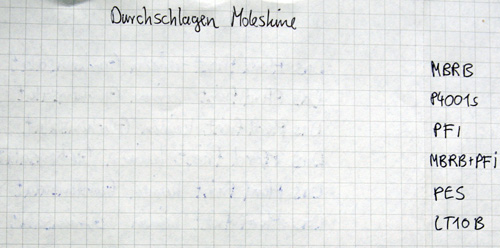 Durchschlagen Moleskine
MBRB
P4001s
PFi
MBRB+PFi
PES
LT10B